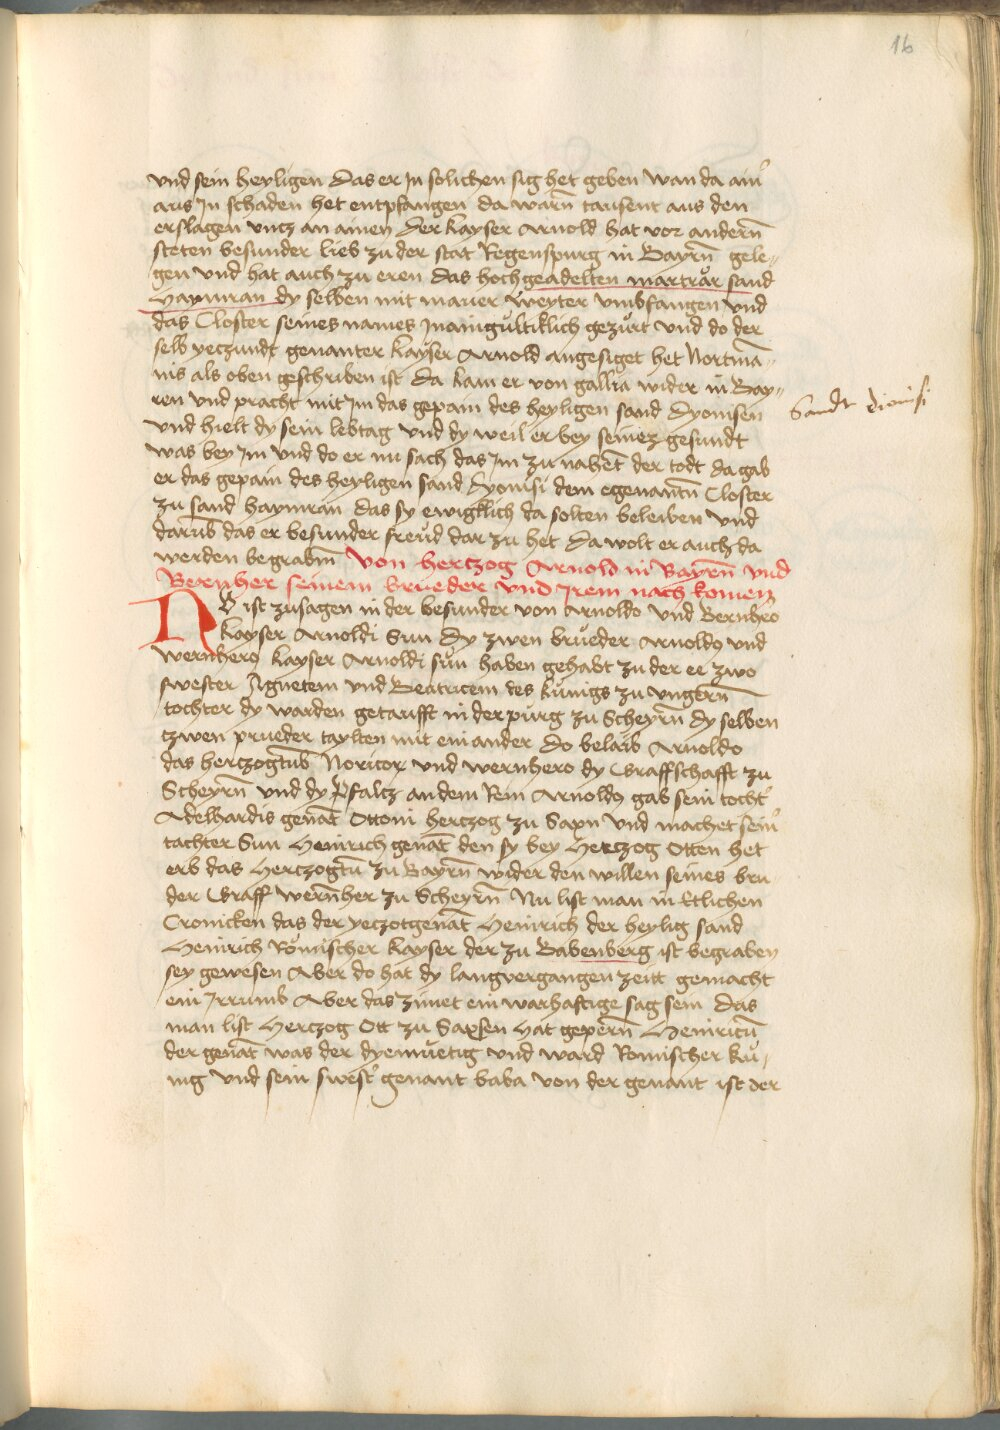 16
vnd sein heyligen das er jn solichen sig het geben wan da ainͦ
aus jn schaden het entpfangen da warn̄ tausent aus den
erslagen vncz an ainen der kayser Arnold hat vor andern̄
steten besunder lieb zu der stat Regenspurg in Bayrn̄ gele-
gen vnd hat auch zu eren das hochgeadelten marträr sand
Haymran dy selben mit mauer weyter vmbfangen vnd
das Closter seines names jnaingültiklich gezürt vnd do der
selb yeczundt genanter kayser Arnold angesiget het Nortmā-
nis als oben geschriben ist da kam er von gallia wider in Bay-
ren vnd pracht mit jm das gepain des heyligen sand dyonisen
Sandt dionisi
vnd hielt dy sein lebtag vnd dy weil er bey seinez gesundt
was bey jm vnd do er nu sach das jm zu nahet̄ der todt da gab
er das gepain des heyligen sand dyonisi dem egenantn̄ Closter
zu sand haymran das sy ewigklich da solten beleiben vnd
darūb das er besunder freud dar zu het da wolt er auch da
werden begrabm̄ Von hertzog Arnold in Bayrn̄ vnd
Bernher seinem brueder vnd jrem nach komen
Nv ist zusagen in der besunder von Arnoldo vnd Bernhero
kayser Arnoldi Sun dy zwen brüeder Arnoldo vnd
wernhero kayser Arnoldi sün haben gehabt zu der ee zwo
swester Agnetem vnd Beatricem des künigs zu vngern̄
tochter dy warden getaufft in der purg zu Scheyrn̄ dy selben
tzwen prueder taylten mit ein ander do belaib Arnoldo
das herczogtūb Noricor vnd wernhero dy Graffschafft zu
Scheyrn̄ vnd dy Pfalcz an dem Rein Arnoldo gab sein tochtͦ
Adelhardis genāt Ottoni herczog zu Saxn vnd machet seinͦ
tachter Sun Heinrich genāt den sy bey Herczog Otten het
erb das Herczogtū zu Bayrn̄ wider den willen seines bru-
der Graff wern̄her zu Scheyrn̄ Nu list man in Etlichen
Cronicken das der yeczotgenāt Heinrich der heylig sand
Heinrich Römischer kayser der zu Babenberg ist begraben
sey gewesen Aber do hat dy langvergangen zeitt gemacht
ein jrrumb Aber das zimet ein warhaftige sag sein das
man list Herczog Ott zu Saxsen hat gepern̄ Heinricū
der genāt was der dyemuetig vnd ward Romischer kü-
nig vnd sein swestͦ genant baba von der genant ist der